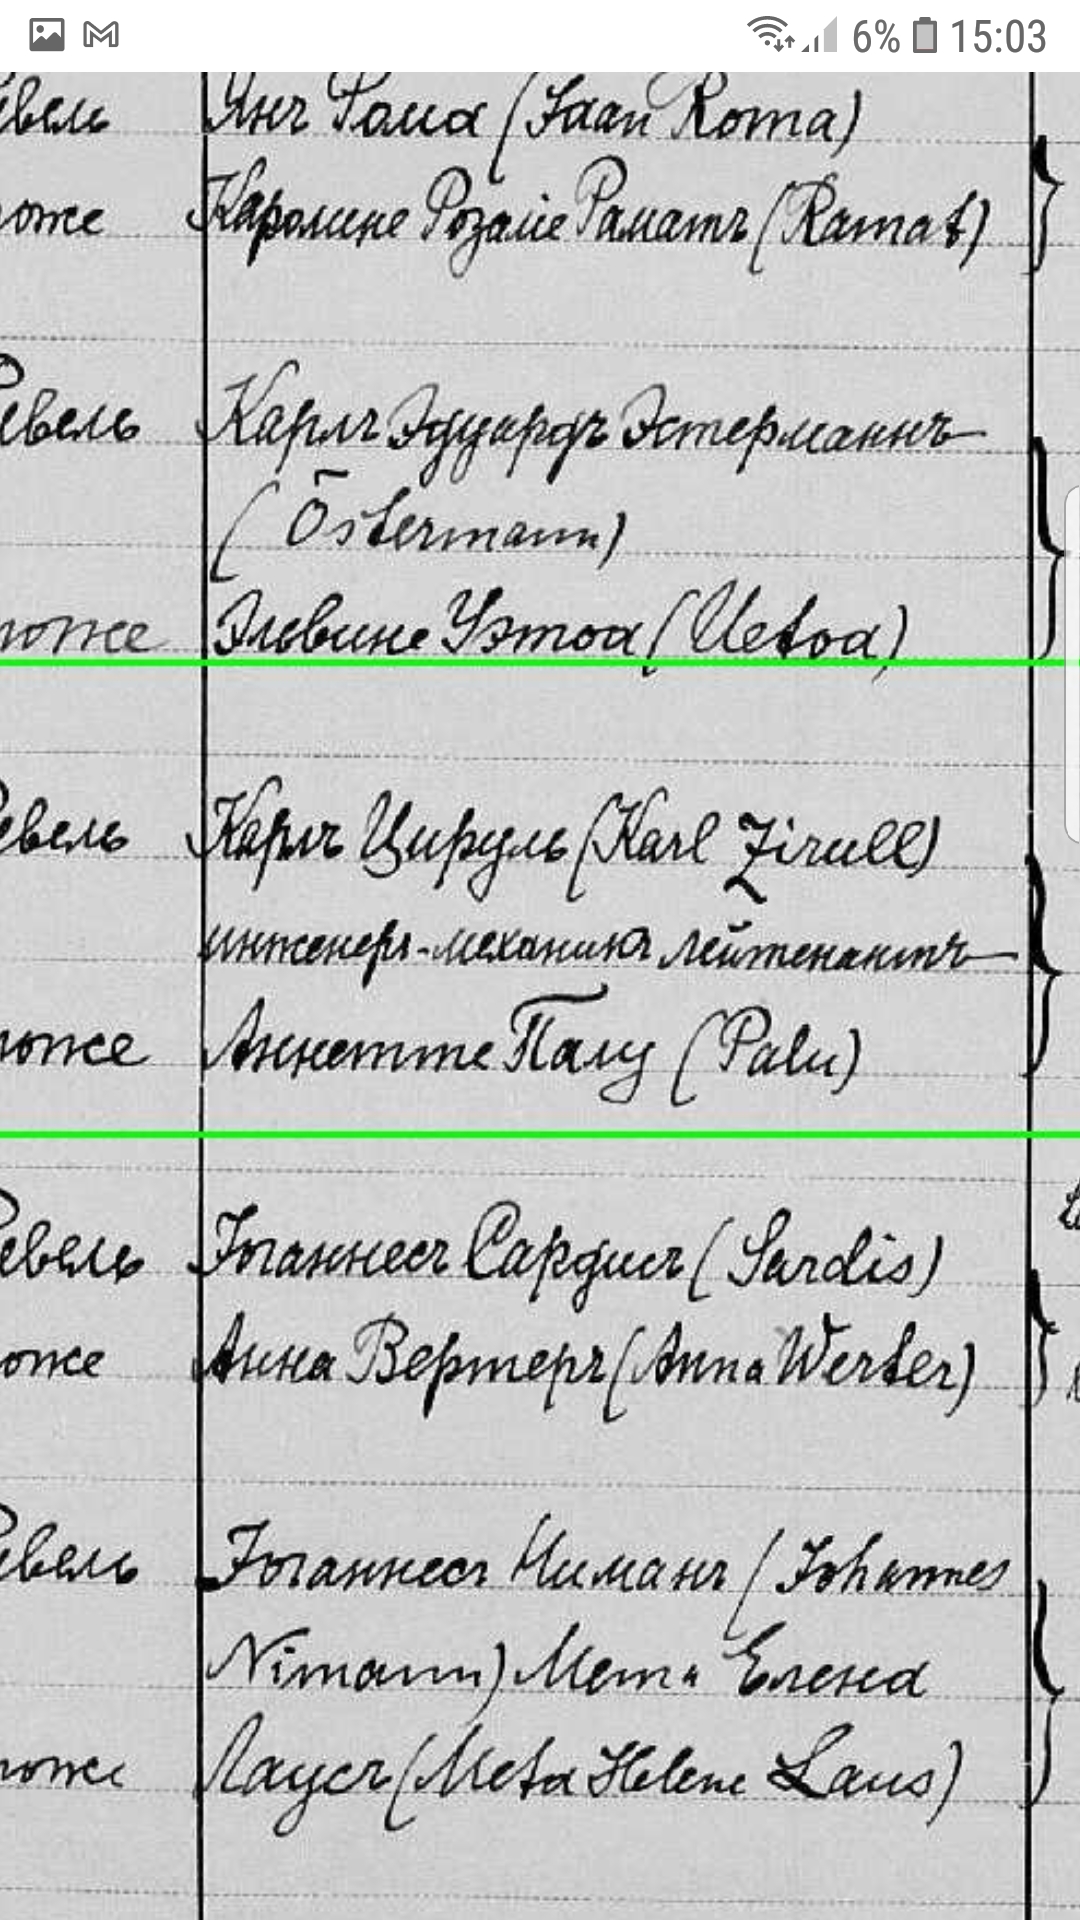 6% 15:03
Янъ Рома (Jaan Roma)
тоже Каролине Розалiе Раматъ (Ramat)
Ревель Карлъ Эдуардъ Эстерманнъ
(Östermann)
тоже Эльвине Уэтоа (Uetoa)
Ревель Карлъ Цируль (Karl Zirull)
инженеръ-механикъ лейтенантъ
тоже Аннетте Палу (Palu)
Ревель Iоганнесъ Сардисъ (Sardis)
тоже Анна Вертеръ (Anna Werter)
Ревель Iоганнесъ Ниманъ (Johannes
Nimann) Мета Елена
тоже Лаусъ (Meta Helene Laus)